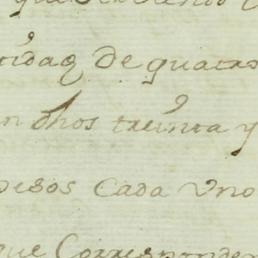 tidaq de guatas
en dhos treinta y
pesos Cada Vno
que Corresponden